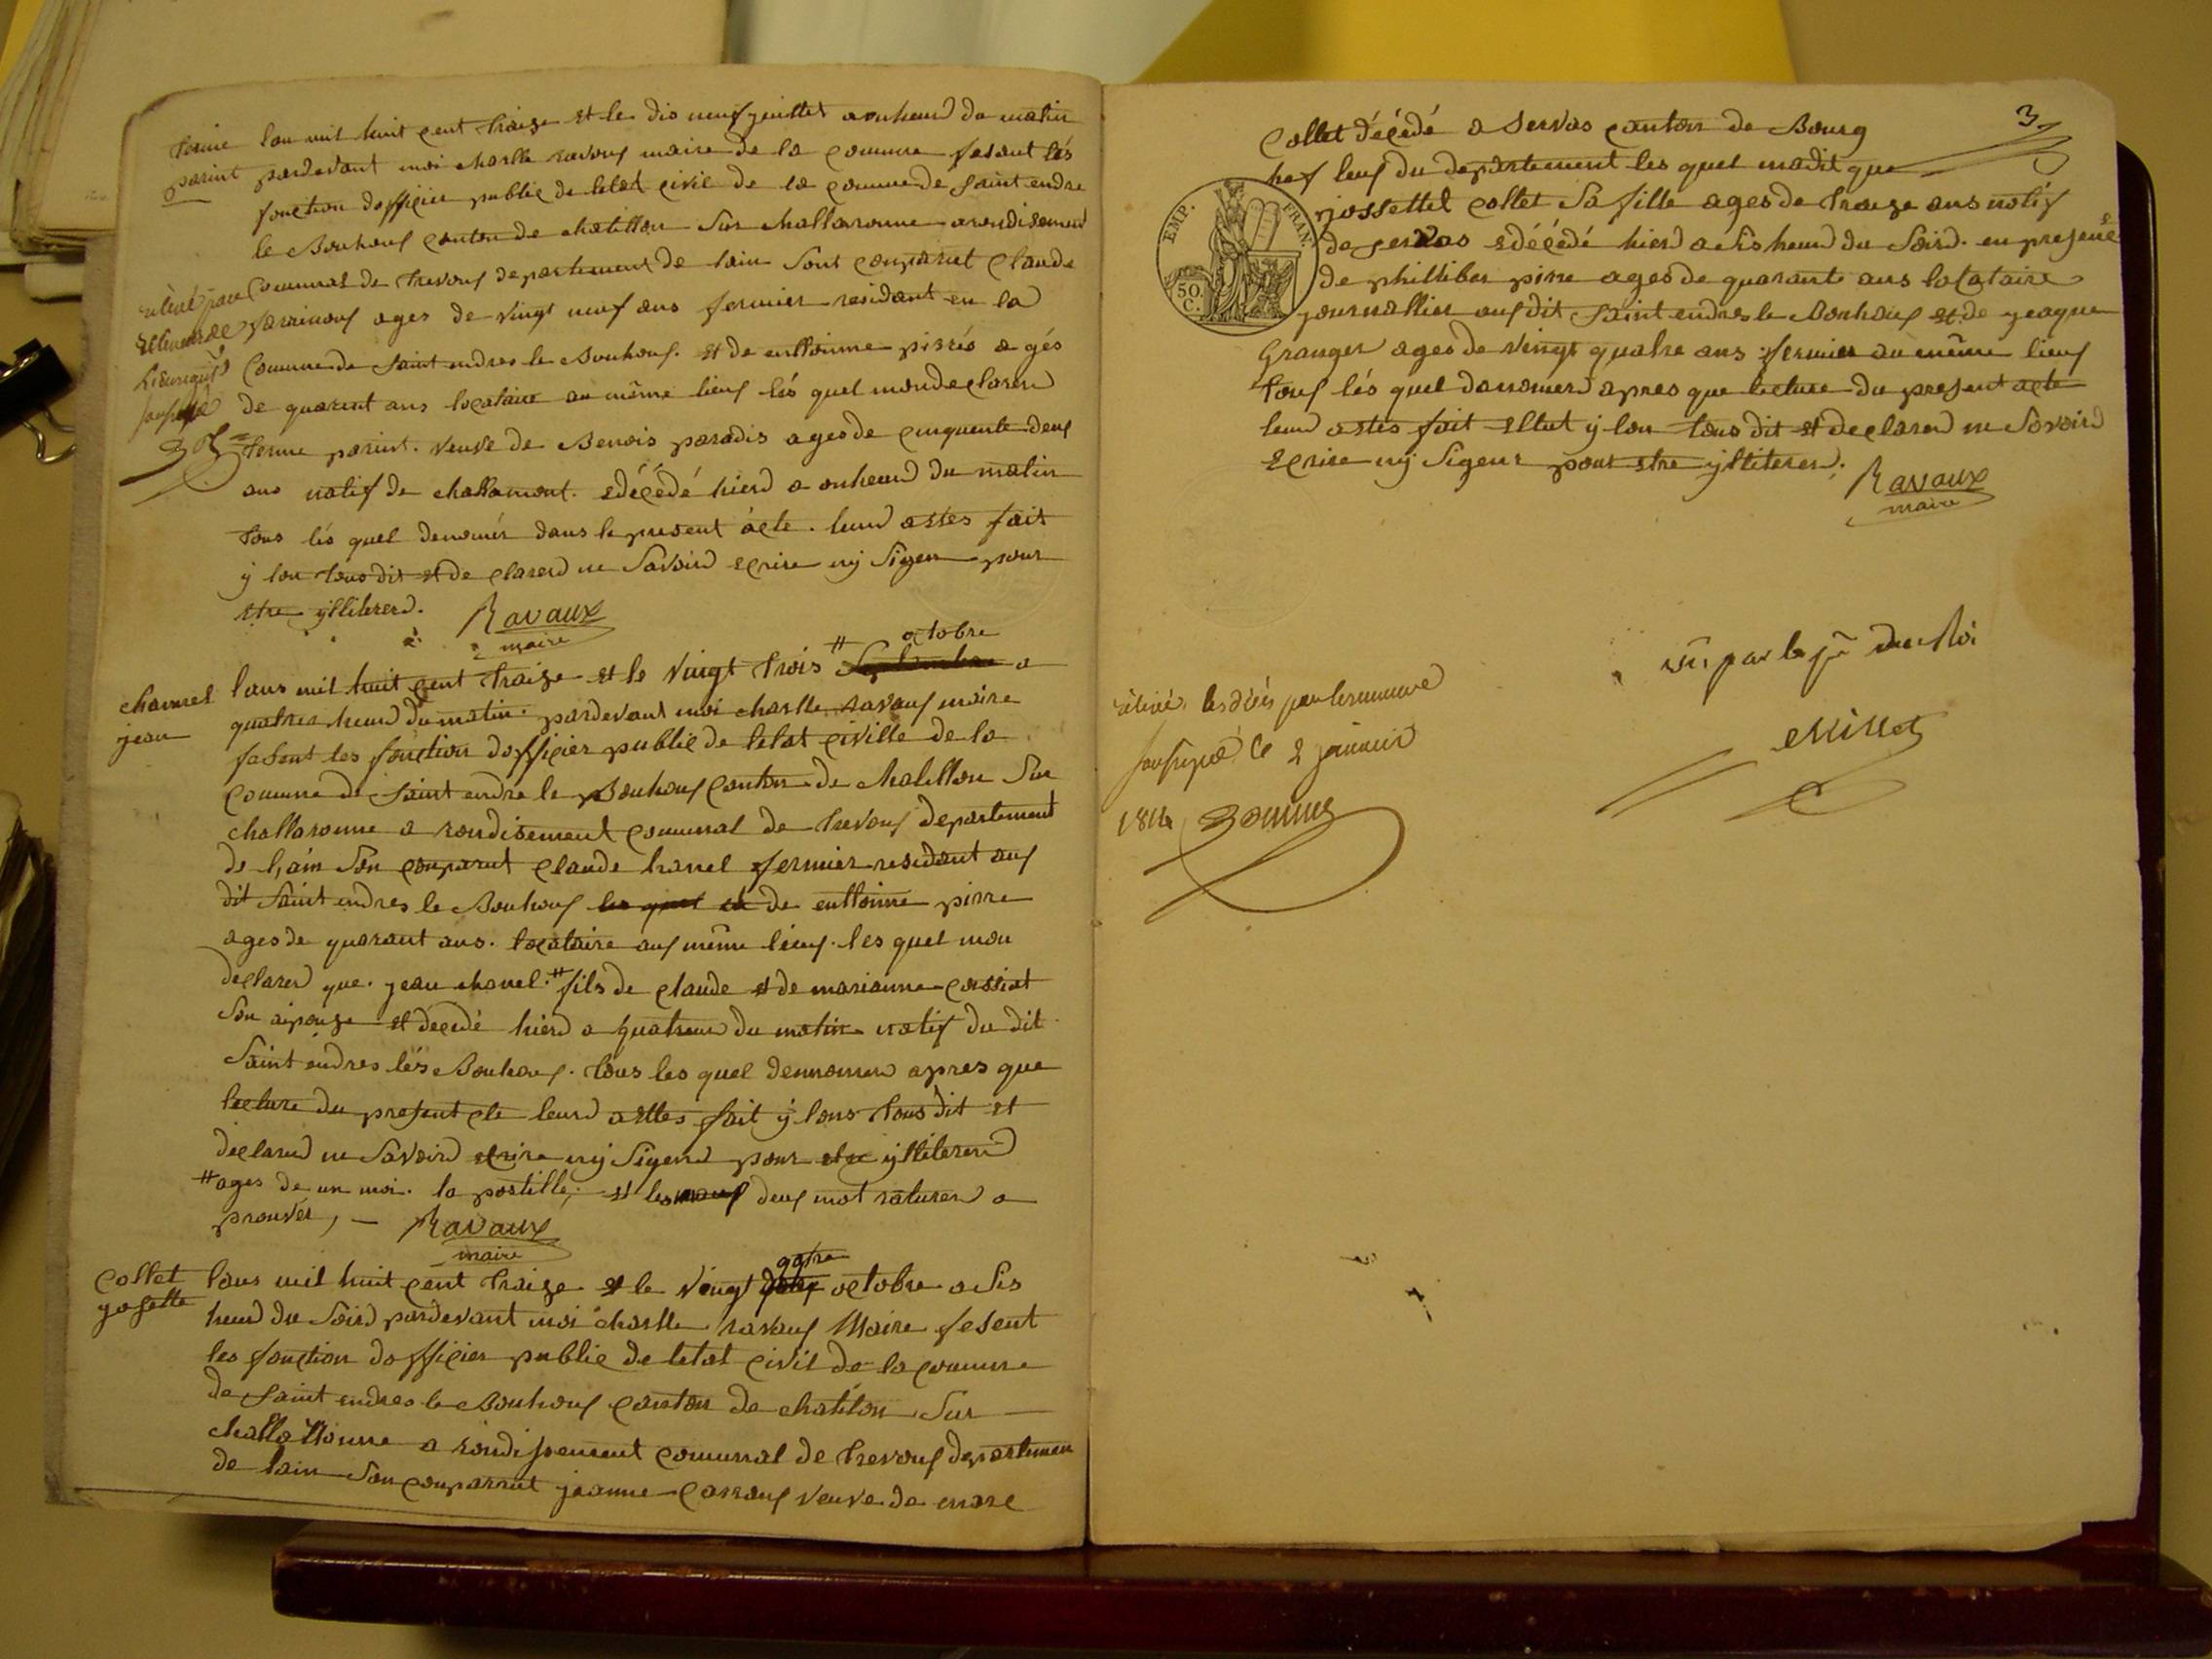 lan mil huit cent traize et le dis neuf juillet a onheurd du matin
parint pardevant moi charlle ravouf maire de la commune fasant lés
fonction dofficier public de letat civil de la comune de saint endre
le Bouhouf canton de chatillon sur challaronne arondisement
Communal de trevouf departement de lain sont conparut claude
farrinouf ages de vingt neuf ans fermier residant en la
Comune de saint endres le Bouhouf. et de enttoinne pirré agés
de quarent ans locataire au même lieuf lés quel monde claren
parint. veuve de Benois paradis ages de cinquente deuf
ans natif de challamont. e décédé hierd a onheurd du matin
tous lés quel denomér dans le present acte. leurd asttes fait
y lon tous dit et de clarerd ne savoird ecrire nÿ sigen pour
etre yllitererd. Ravaux
maire
octobre
chanuel lans mil huit cent traize et le vingt trois # Septembre a
jean quatres heurd du matin. pardevant moi charlle ravouf maire
fasent les fonction dofficier public de letat civille de la
Comune de saint endre le Bouhouf canton de chatillon sur
challaronne a rondisement communal de trevouf departement
de l,ain son conparut claude hanel fermier residant auf
dit saint endres le Bouhouf les quel de enttoinne pirre
ages de quarant ans. locataire auf même lieuf. les quel mon
declarer que. jean chanel. # fils de claude et de marianne
son aipouze et décedé hierd a quatreur du matin natif du dit
saint endres lés Bouhouf. tous les quel dennomer apres que
lecture du present cte leurd asttes fait ÿ lons tous dit et
declarerd ne savoird ecrire nÿ sigend pour etre yllitererd
# ages de un moi. la postille; et les deuf mot raturer a
prouvés, — Ravaux
maire
qatre
Collet lans mil huit cent traize et le vingt octobre a sis
josette heurd du soird pardevant moi charlle ravouf Maire fesent
les fonction dofficier public de letat civil de la comune
de saint endres le Bouhouf canton de chatilon sur
a rondissement comunal de trevouf departemen
de lain son conparrut jeanne veuve de marc
3
Collet décédé a servas canton de Bourg
hef leuf du departement les quel madit que
EMP. FRAN.
50. C.
jossettel collet sa fille ages de traize ans natif
de servas e décédé hierd a sis heurd du soird. en presene
de philliber pirre ages de quarante ans locataire
journallier auf dit saint endres le Bouhouf et. de jeaque
Granger ages de vingt quatre ans fermier au même lieuf
tous lés quel danomerd apres que lecture du present acte
leurd astes fait y lon tous dit et declarerd ne savoird
ecrire nÿ sigeur pour etre yllitererd.
Ravaux
maire
vû par le du Roi
Millet
soussigné le 2 janvier
1814